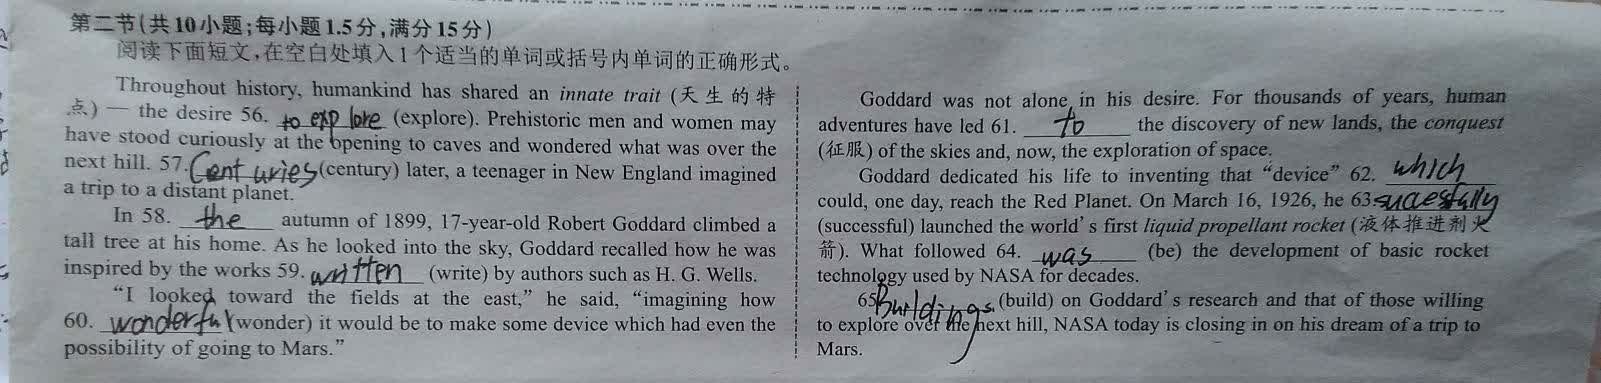 第二节(共10小题;每小题1.5分,满分15分)
阅读下面短文,在空白处填入1个适当的单词或括号内单词的正确形式。
Throughout history, humankind has shared an innate trait (天生的特
点) — the desire 56. to explore (explore). Prehistoric men and women may
have stood curiously at the opening to caves and wondered what was over the
next hill. 57. Centuries (century) later, a teenager in New England imagined
a trip to a distant planet.
In 58. the autumn of 1899, 17-year-old Robert Goddard climbed a
tall tree at his home. As he looked into the sky, Goddard recalled how he was
inspired by the works 59. written (write) by authors such as H. G. Wells.
“I looked toward the fields at the east,” he said, “imagining how
60. wonderful (wonder) it would be to make some device which had even the
possibility of going to Mars.”
Goddard was not alone in his desire. For thousands of years, human
adventures have led 61. to the discovery of new lands, the conquest
(征服) of the skies and, now, the exploration of space.
Goddard dedicated his life to inventing that “device” 62. which
could, one day, reach the Red Planet. On March 16, 1926, he 63. sucessfully
(successful) launched the world's first liquid propellant rocket (液体推进剂火
箭). What followed 64. was (be) the development of basic rocket
technology used by NASA for decades.
65. Buildings (build) on Goddard's research and that of those willing
to explore over the next hill, NASA today is closing in on his dream of a trip to
Mars.